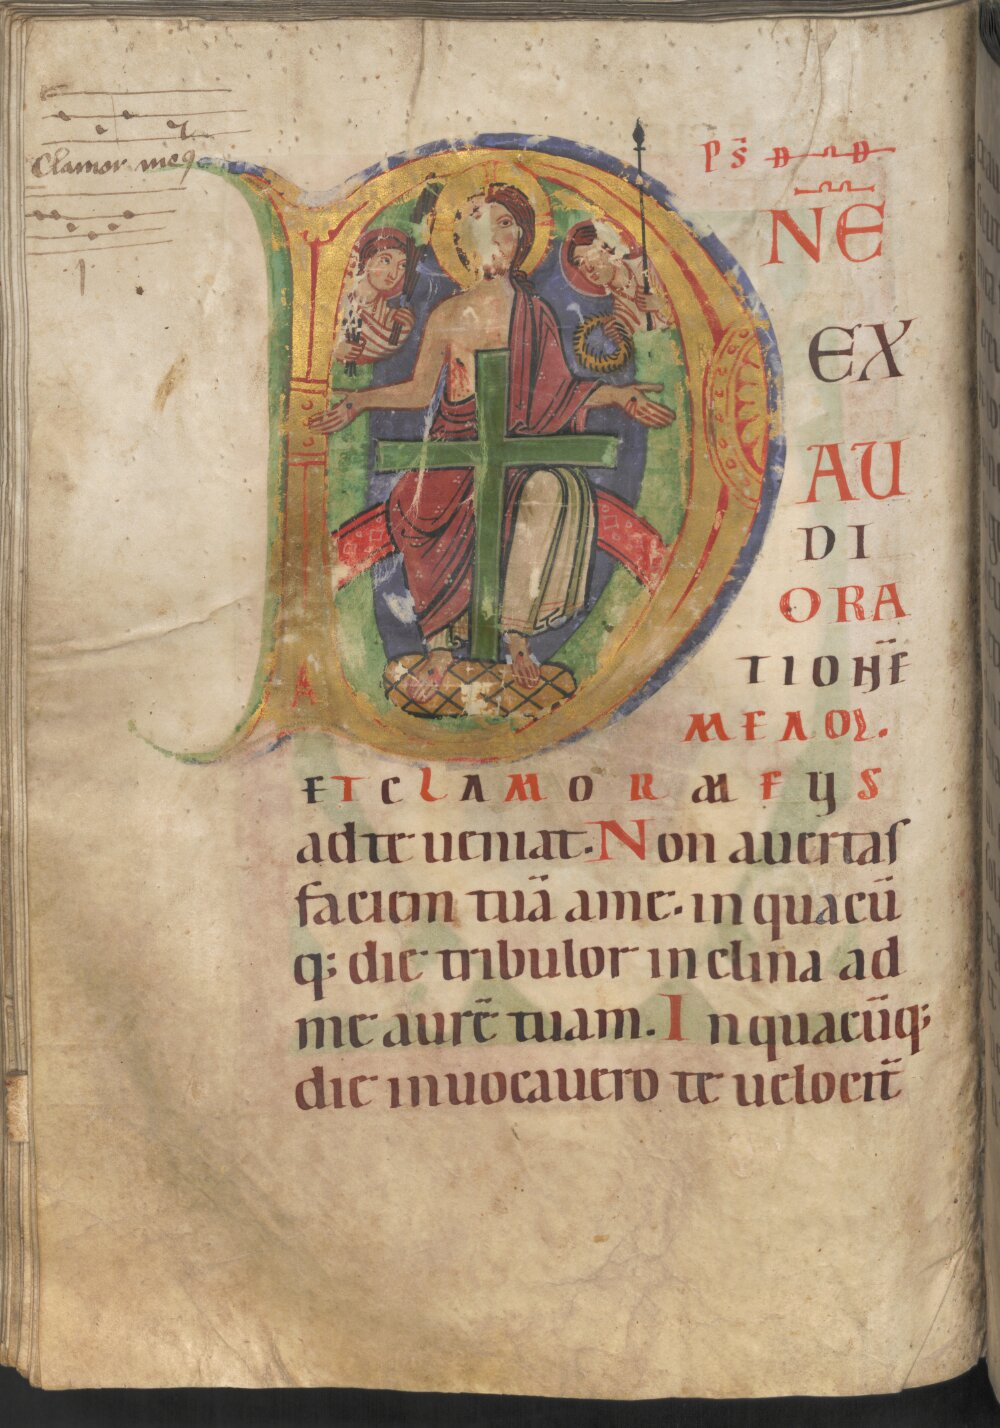 Clamor meꝰ
D
Ps̄ DD
N̄E
EX
AU
DI
ORA
TIONĒ
MEAM.
ET CLAMOR MEUS
ad te ueniat. Non auertas
faciem tuā a me. in quacū
q; die tribulor inclina ad
me aurē tuam. In quacūq;
die inuocauero te uelocit̄